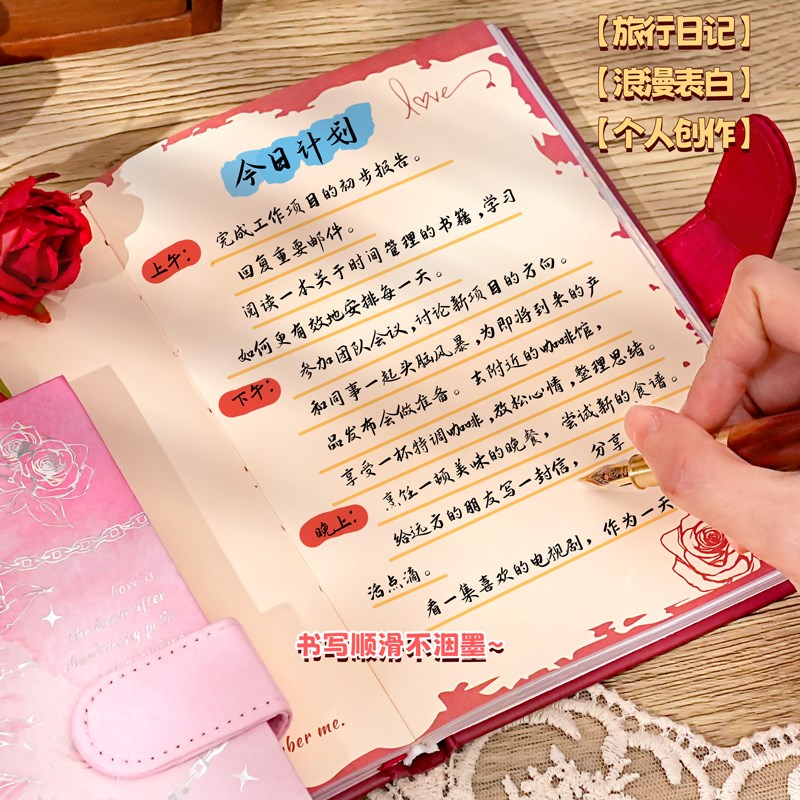 【旅行日记】
【浪漫表白】
【个人创作】
love
今日计划
上午：
完成工作项目的初步报告。
回复重要邮件。
阅读一本关于时间管理的书籍，学习
如何更有效地安排每一天。
下午：
参加团队会议，讨论新项目的方向。
和同事一起头脑风暴，为即将到来的产
品发布会做准备。去附近的咖啡馆，
享受一杯特调咖啡，放松心情，整理思绪。
晚上：
烹饪一顿美味的晚餐，尝试新的食谱。
给远方的朋友写一封信，分享
活点滴。
看一集喜欢的电视剧，作为一天
Love is
the
after
书写顺滑不洇墨~
ber me.